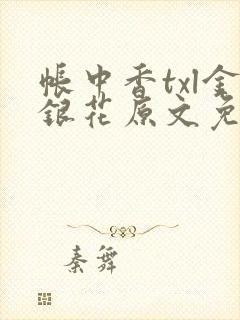 帐中香txl金
银花原文免
秦舞